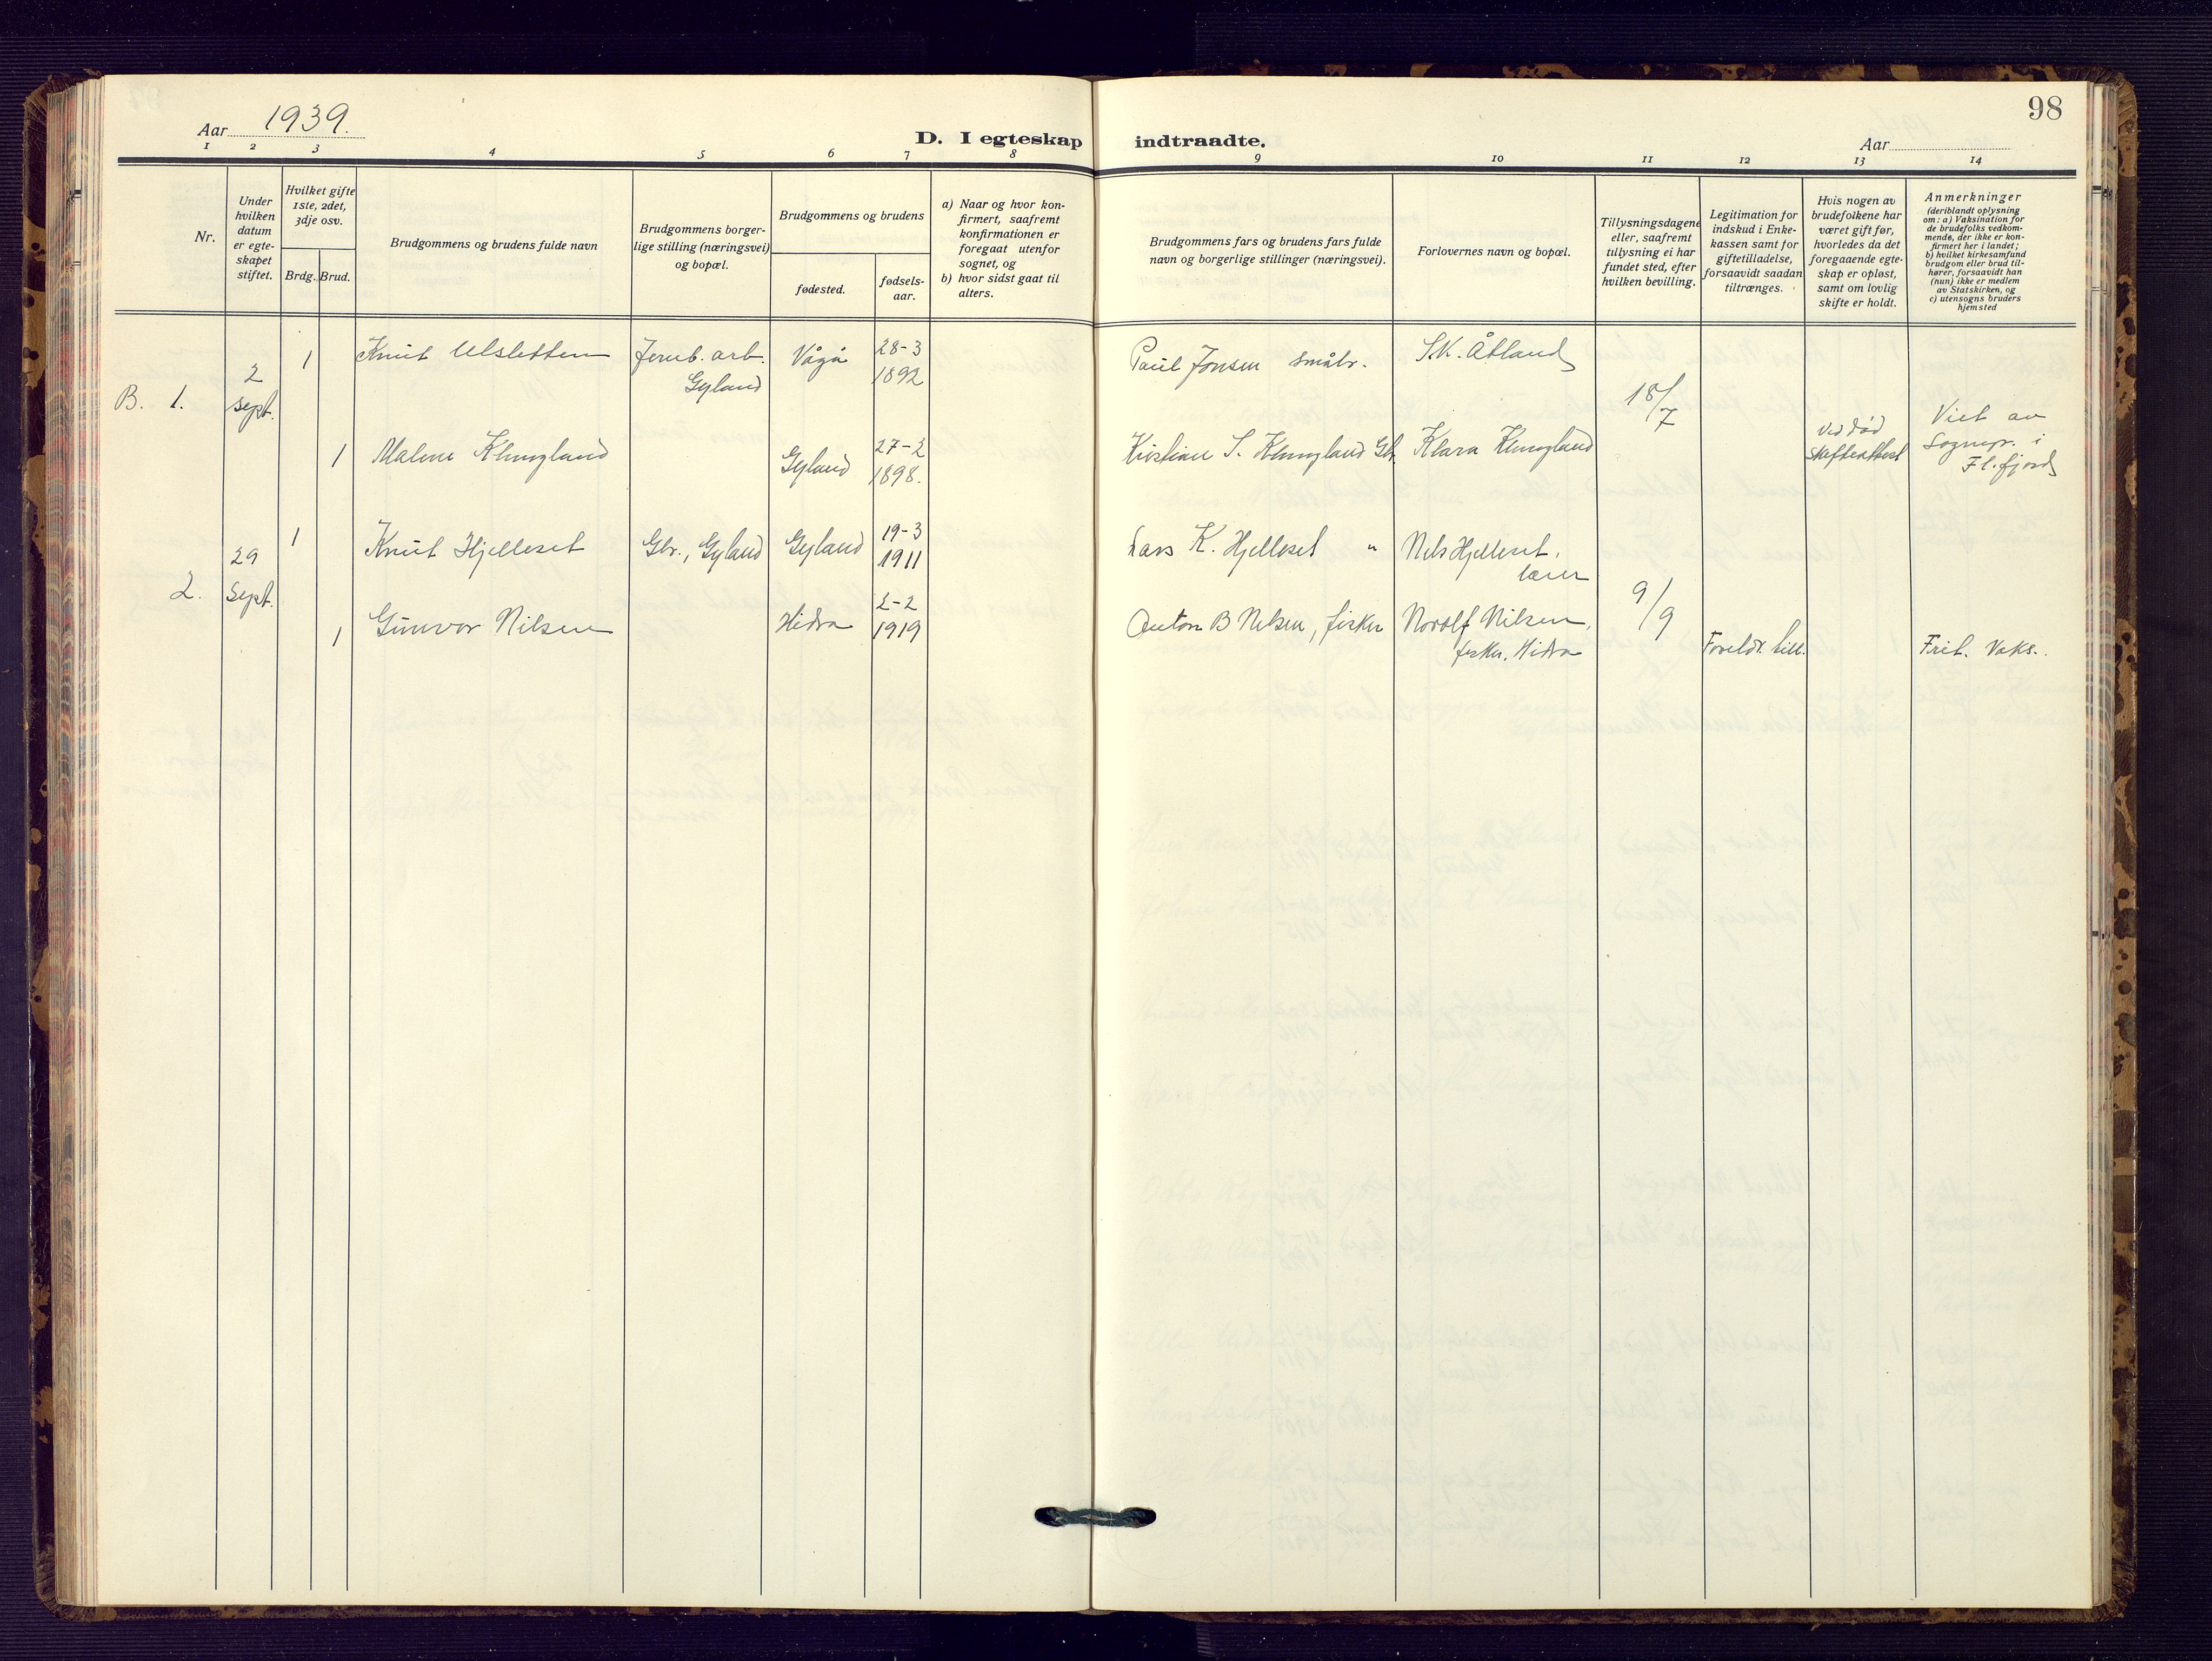 98
Aar 1939.
D. I egteskap indtraadte.
Aar
1 2 3 4 5 6 7 8 9 10 11 12 13 14
Nr.
Under
hvilken
datum
er egte-
skapet
stiftet.
Hvilket gifte
1ste, 2det,
3dje osv.
Brdg. Brud.
Brudgommens og brudens fulde navn
Brudgommens borger-
lige stilling (næringsvei)
og bopæl.
Brudgommens og brudens
fødested.
fødsels-
aar.
a) Naar og hvor kon-
firmert, saafremt
konfirmationen er
foregaat utenfor
sognet, og
b) hvor sidst gaat til
alters.
Brudgommens fars og brudens fars fulde
navn og borgerlige stillinger (næringsvei).
Forlovernes navn og bopæl.
Tillysningsdagene
eller, saafremt
tillysning ei har
fundet sted, efter
hvilken bevilling.
Legitimation for
indskud i Enke-
kassen samt for
giftetilladelse,
forsaavidt saadan
tiltrænges.
Hvis nogen av
brudefolkene har
været gift før,
hvorledes da det
foregaaende egte-
skap er opløst,
samt om lovlig
skifte er holdt.
Anmerkninger
(deriblandt oplysning
om: a) Vaksination for
de brudefolks vedkom-
mende, der ikke er kon-
firmert her i landet;
b) hvilket kirkesamfund
brudgom eller brud til-
hører, forsaavidt han
(hun) ikke er medlem
av Statskirken, og
c) utensogns bruders
hjemsted
B. 1.
2
sept.
1
Knut Ulsletten
Jernb. arb.
Gyland
Vågå
28-3
1892
Paul Jonsen småbr.
S.K. Åtland
18/7
1
Malene Klungland
Gyland
27-2
1898.
Kristian S. Klungland Gbr.
Klara Klungland
Ved død
Skifteattest
Viet av
Sognepr. i
Fl.fjord
2.
29
Sept.
1
Knut Hjelleset
Gbr., Gyland
Gyland
19-3
1911
Lars K. Hjelleset "
Nels Hjelleset,
lærer
9/9
1
Gunvor Nilsen
Hidra
2-2
1919
Anton B Nelsen, fisker
Norolf Nilsen,
fisker, Hidra
Foreldr. till.
Frit. Vaks.